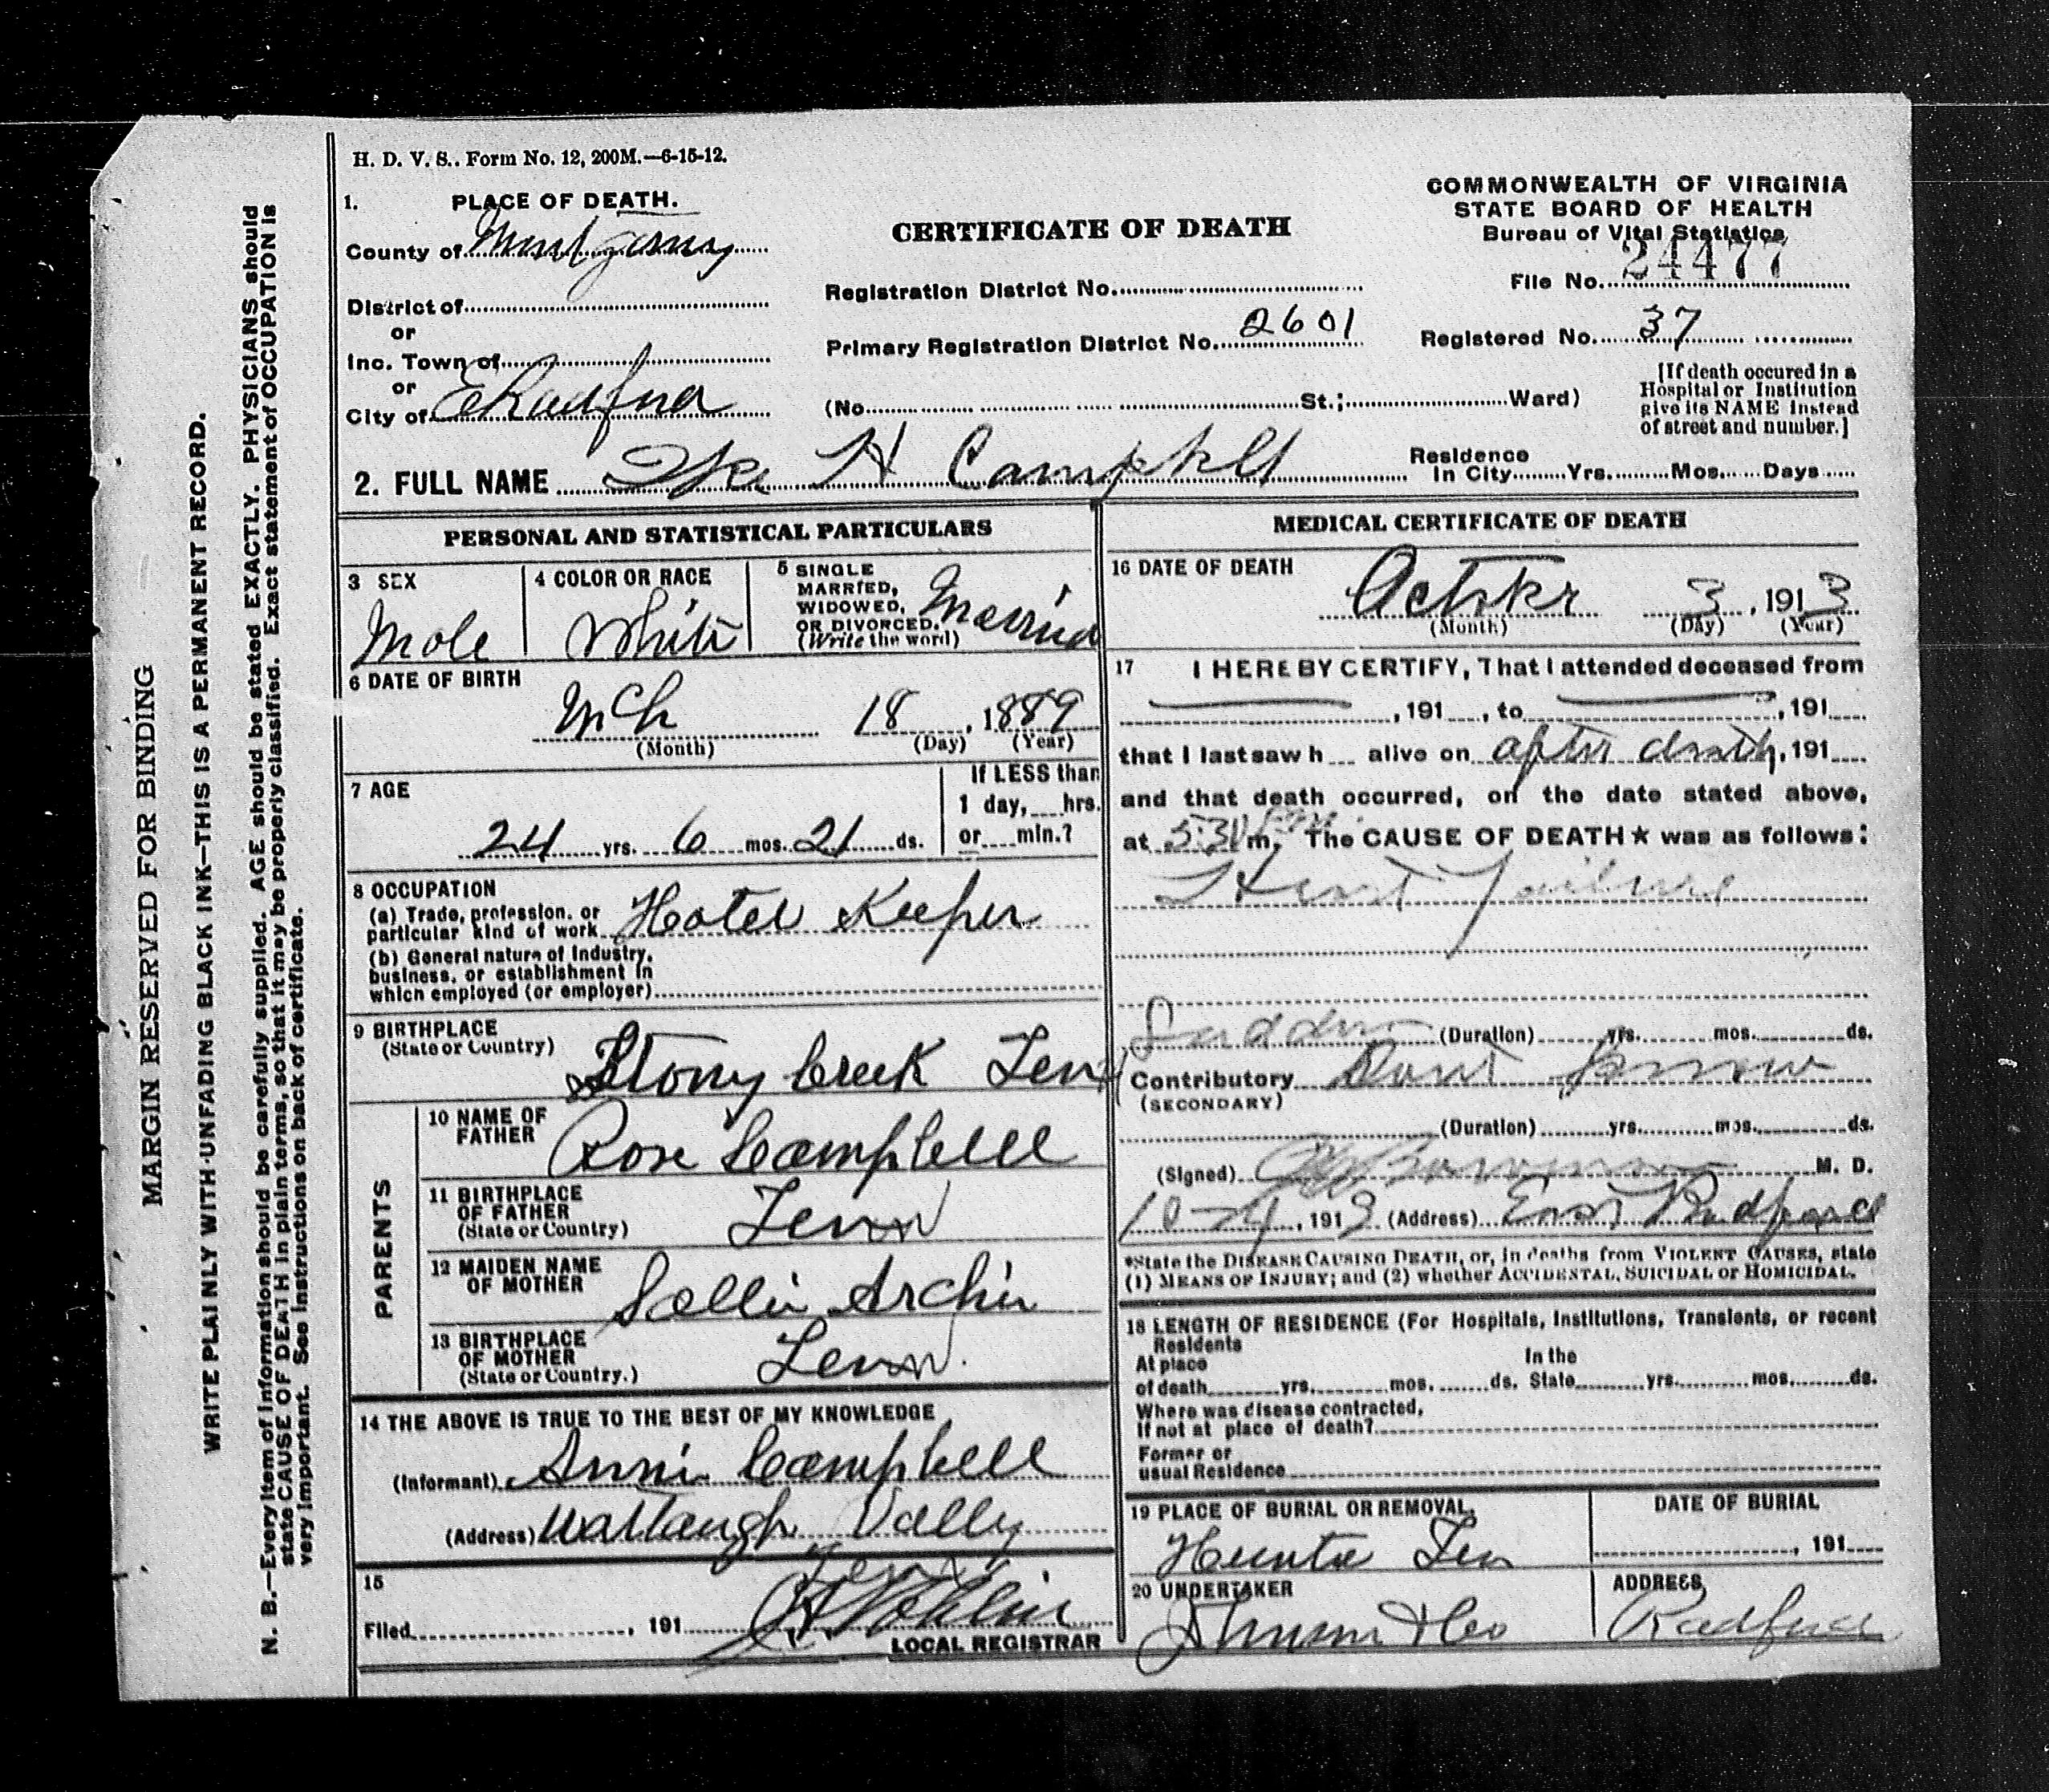 H. D. V. S.. Form No. 12, 200M.—6-15-12.
1. PLACE OF DEATH.
County of Montgomery
District of
or
Inc. Town of
or
City of E Radford
CERTIFICATE OF DEATH
Registration District No.
Primary Registration District No. 2601
(No. St.; Ward)
COMMONWEALTH OF VIRGINIA
STATE BOARD OF HEALTH
Bureau of Vital Statistics
File No. 24477
Registered No. 37
[If death occured in a
Hospital or Institution
give its NAME instead
of street and number.]
2. FULL NAME Ike H Campbell
Residence
In City Yrs. Mos. Days
PERSONAL AND STATISTICAL PARTICULARS
3 SEX
Male
4 COLOR OR RACE
White
5 SINGLE
MARRIED,
WIDOWED,
OR DIVORCED.
(Write the word)
Married
6 DATE OF BIRTH
Mch 18, 1889
(Month) (Day) (Year)
7 AGE
24 yrs. 6 mos. 21 ds.
If LESS than
1 day, hrs.
or min.?
8 OCCUPATION
(a) Trade, profession, or
particular kind of work Hotel Keeper
(b) General nature of Industry,
business, or establishment in
which employed (or employer)
9 BIRTHPLACE
(State or Country)
Stony Creek Tenn
PARENTS
10 NAME OF
FATHER
Rose Campbell
11 BIRTHPLACE
OF FATHER
(State or Country)
Tenn
12 MAIDEN NAME
OF MOTHER
Sallie Archer
13 BIRTHPLACE
OF MOTHER
(State or Country.)
Tenn.
14 THE ABOVE IS TRUE TO THE BEST OF MY KNOWLEDGE
(Informant) Annie Campbell
(Address) Wattaugh Vally
Tenn
15
Filed , 191
LOCAL REGISTRAR
MEDICAL CERTIFICATE OF DEATH
16 DATE OF DEATH
October 3, 1913
(Month) (Day) (Year)
17 I HEREBY CERTIFY, That I attended deceased from
, 191 , to , 191
that I last saw h alive on after death, 191
and that death occurred, on the date stated above,
at m. The CAUSE OF DEATH★ was as follows:
Heart Failure
Sudden (Duration) yrs. mos. ds.
Contributory Dont know
(SECONDARY)
(Duration) yrs. mos. ds.
(Signed) M. D.
10-4, 1913 (Address) East Radford
*State the DISEASE CAUSING DEATH, or, in deaths from VIOLENT CAUSES, state
(1) MEANS OF INJURY; and (2) whether ACCIDENTAL, SUICIDAL or HOMICIDAL.
18 LENGTH OF RESIDENCE (For Hospitals, Institutions, Transients, or recent
Residents
At place
of death yrs. mos. ds.
In the
State yrs. mos. ds.
Where was disease contracted,
If not at place of death?
Former or
usual Residence
19 PLACE OF BURIAL OR REMOVAL,
Hunter Ten
DATE OF BURIAL
, 191
20 UNDERTAKER
ADDRESS
Radford
MARGIN RESERVED FOR BINDING
WRITE PLAINLY WITH UNFADING BLACK INK—THIS IS A PERMANENT RECORD.
N. B.—Every item of information should be carefully supplied. AGE should be stated EXACTLY. PHYSICIANS should
state CAUSE OF DEATH in plain terms, so that it may be properly classified. Exact statement of OCCUPATION is
very important. See instructions on back of certificate.